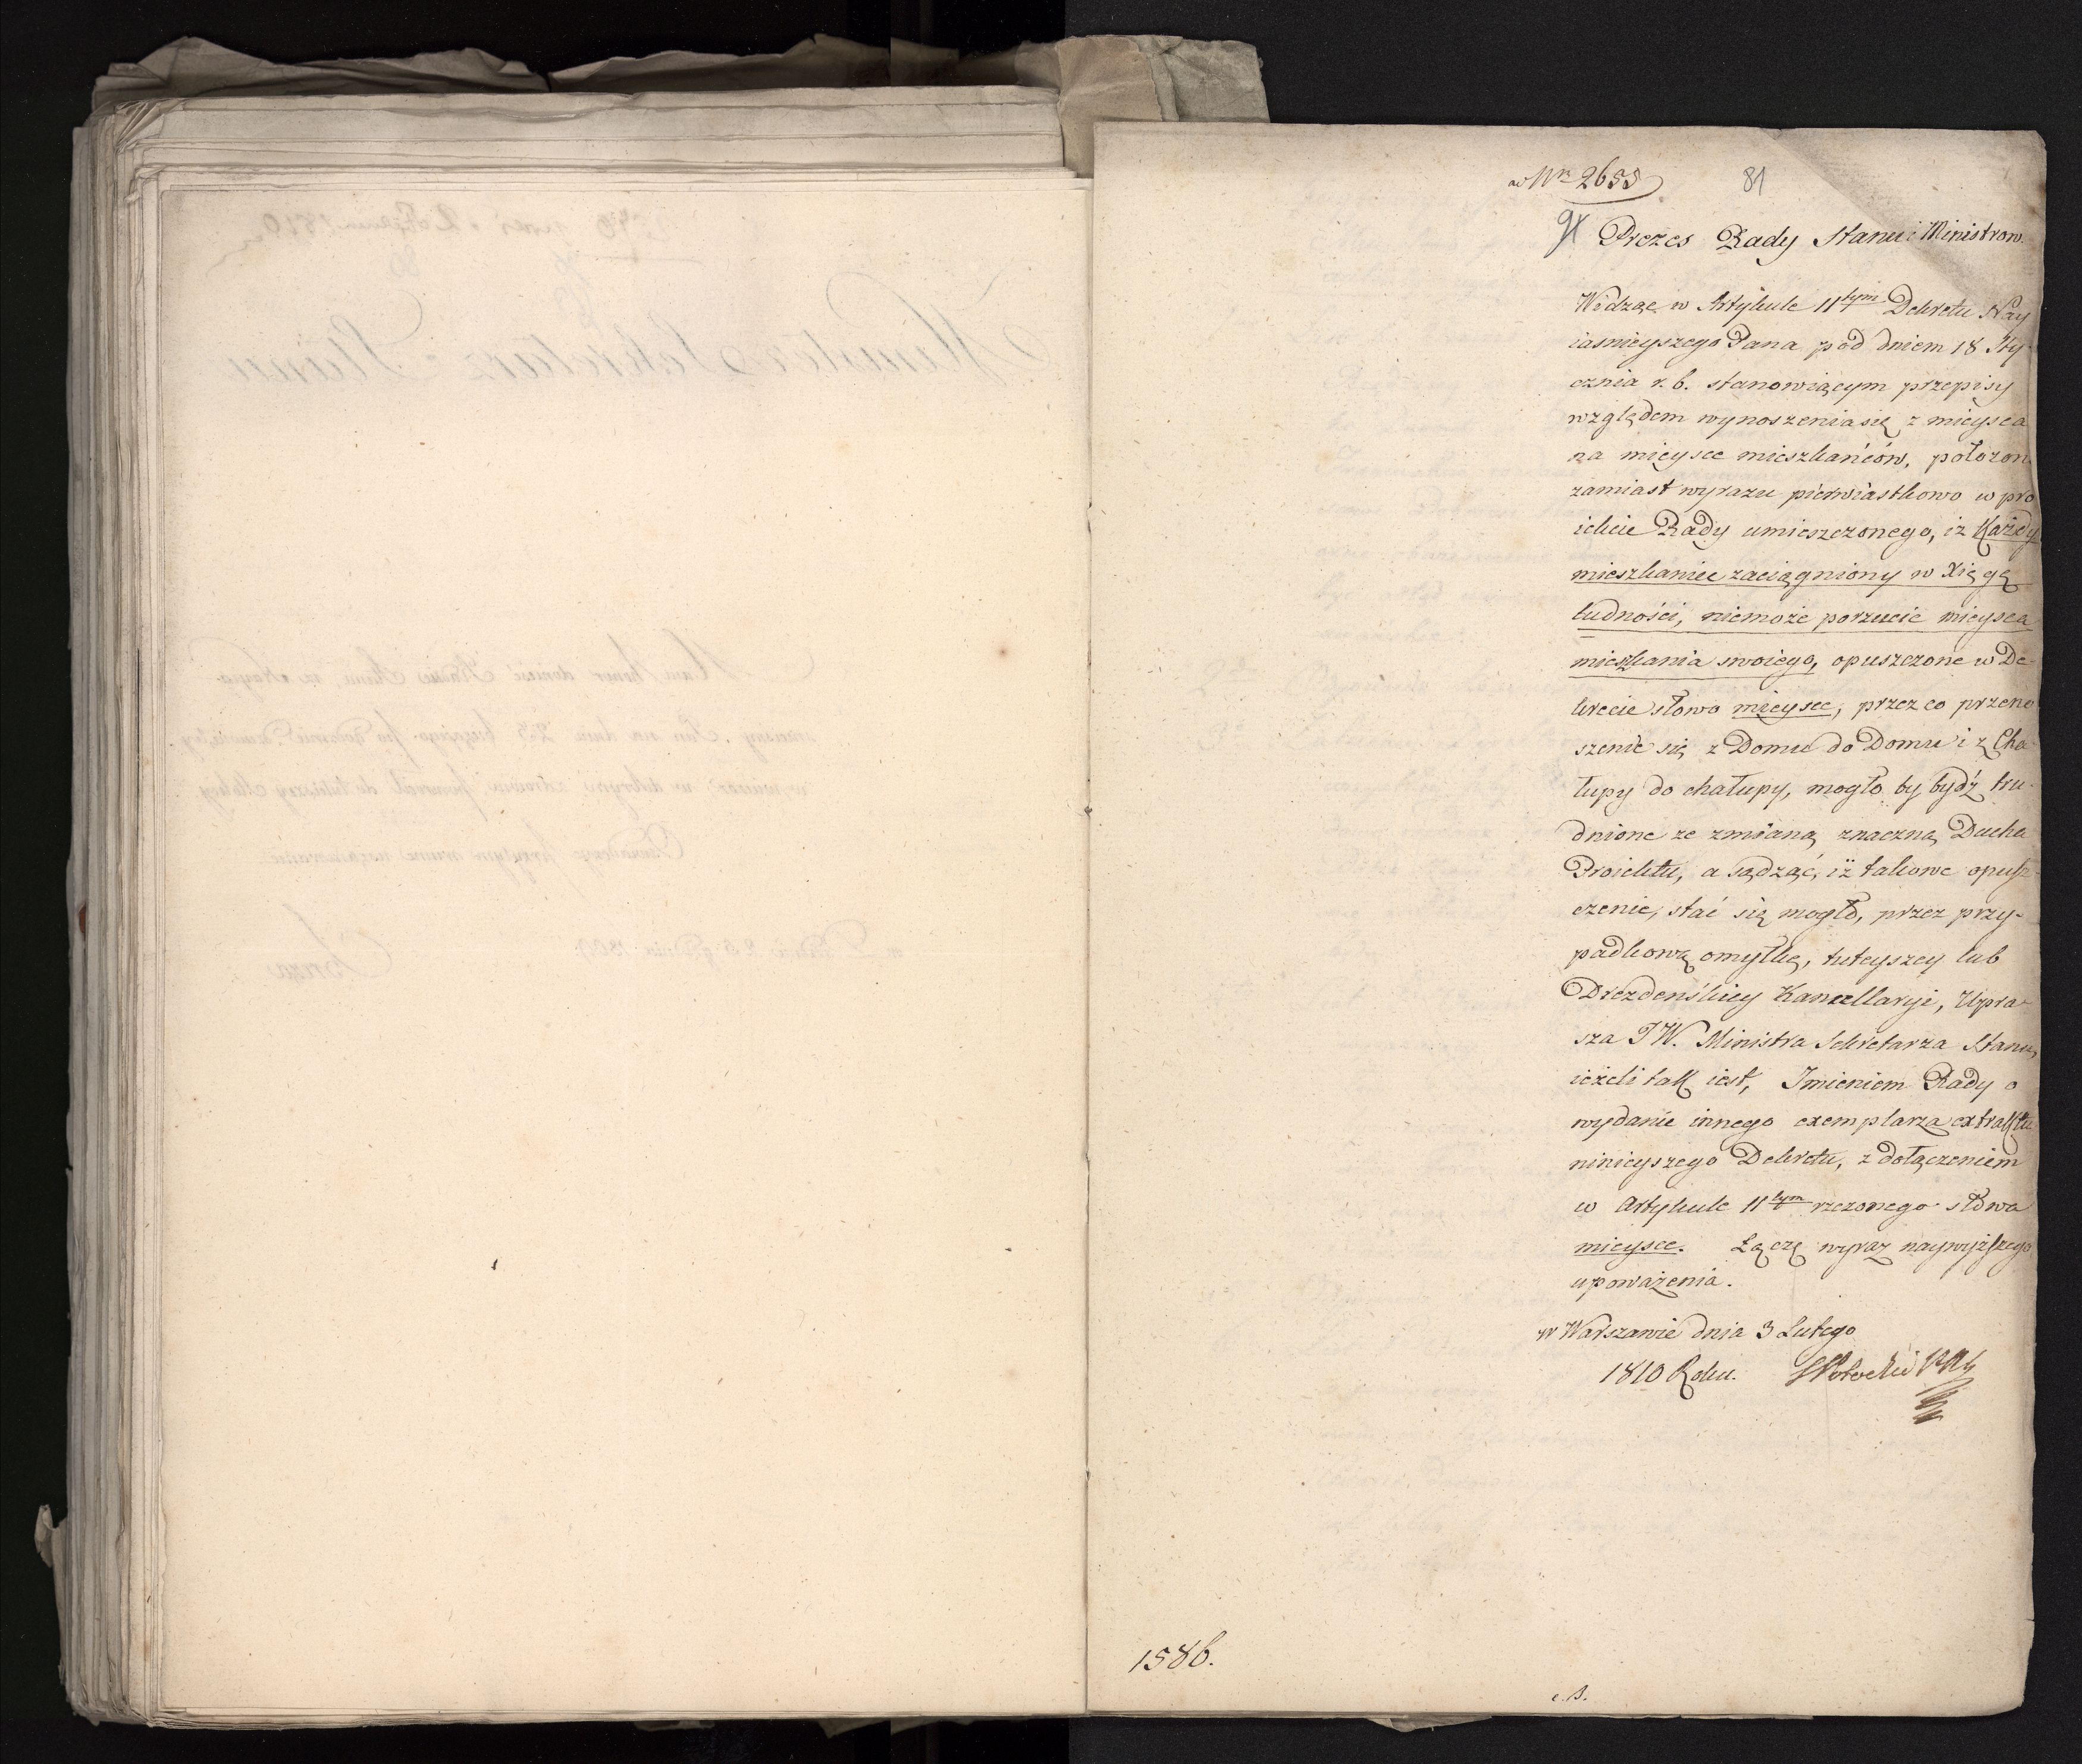 w Nr 2655
81
Prezes Rady Stanu i Ministrow.
Widząc w Artykule 11tym Dekretu Nay
iasnieyszego Pana pod dniem 18 Sty-
cznia r. b. stanowiącym przepisy
względem wynoszenia się z mieysca
na mieysce mieszkańców, położon
zamiast wyrazu pierwiastkowo w pro
iekcie Rady umieszczonego, iż Każdy
mieszkaniec zaciągniony w Xięgę
ludności, niemoże porzucić mieysca
mieszkania swoiego, opuszczone w De-
krecie słowo mieysce, przez co przeno
szenie się z Domu do Domu i z Cha-
łupy do chałupy, mogło by bydź tru-
dnione ze zmianą znaczną Ducha
Proiektu, a sądząc, iż takowe opusz-
czenie, stać się mogło, przez przy-
padkową omyłkę, tuteyszey lub
Drezdeńskiey Kancellaryi, Upra-
sza JW. Ministra Sekretarza Stanu,
ieżeli tak iest, Imieniem Rady o
wydanie innego exemplarza extraktu
ninieyszego Dekretu, z dołączeniem
w Artykule 11tym rzeczonego słowa
mieysce. Łączę wyraz naywyższego
upoważenia.
w Warszawie dnia 3 Lutego
1810 Roku. SPotocki
1586.